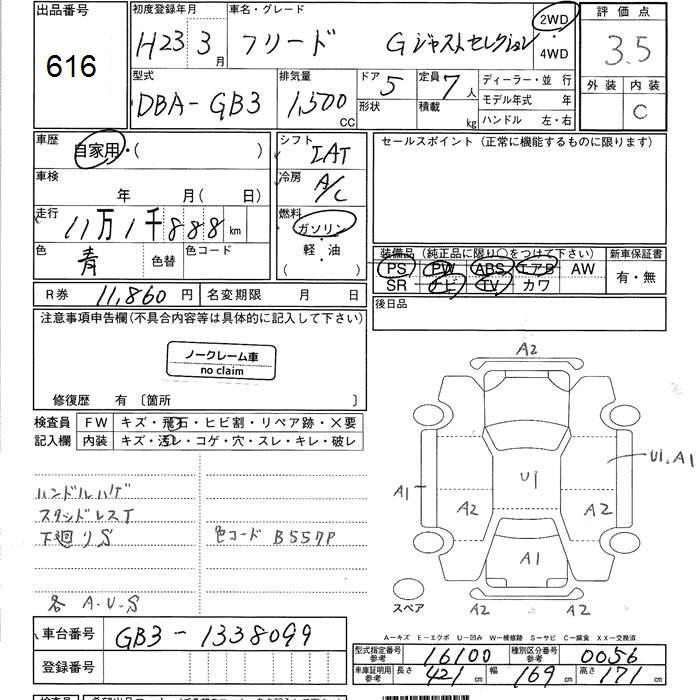 出品番号
616
初度登録年月
H23 3月
車名・グレード
フリード Gジャストセレクション
2WD
・
4WD
評価点
3.5
外装 内装
C
型式
DBA-GB3
排気量
1,500
CC
ドア
5
形状
定員
7人
積載
kg
ディーラー・並行
モデル年式 年
ハンドル 左・右
車歴
自家用・( )
シフト
IAT
セールスポイント (正常に機能するものに限ります)
車検
年 月( 日)
冷房
A/C
走行
11万1千888km
燃料
ガソリン
・
軽・油
・
( )
色
青
色替
色コード
装備品 (純正品に限り○をつけて下さい)
新車保証書
PS PW ABS エアB AW
SR ナビ TV カワ
有・無
R券 11,860円
名変期限 月 日
後日品
注意事項申告欄(不具合内容等は具体的に記入して下さい)
ノークレーム車
no claim
修復歴 有 〔箇所 〕
検査員
記入欄
FW キズ・飛石・ヒビ割・リペア跡・×要
内装 キズ・汚レ・コゲ・穴・スレ・キレ・破レ
ハンドルハゲ
スタッドレスT
下廻りS
色コード B557P
各 A.U.S
A2
U1.A1
A1
U1
A2
A2
A1
スペア
A2
A2
A-キズ E-エクボ U-凹み W-補修跡 S-サビ C-腐食 XX-交換済
車台番号
GB3-1338099
登録番号
型式指定番号
参考
16100
種別区分番号
参考
0056
車庫証明用
参考
長さ
421cm
幅
169cm
高さ
171cm